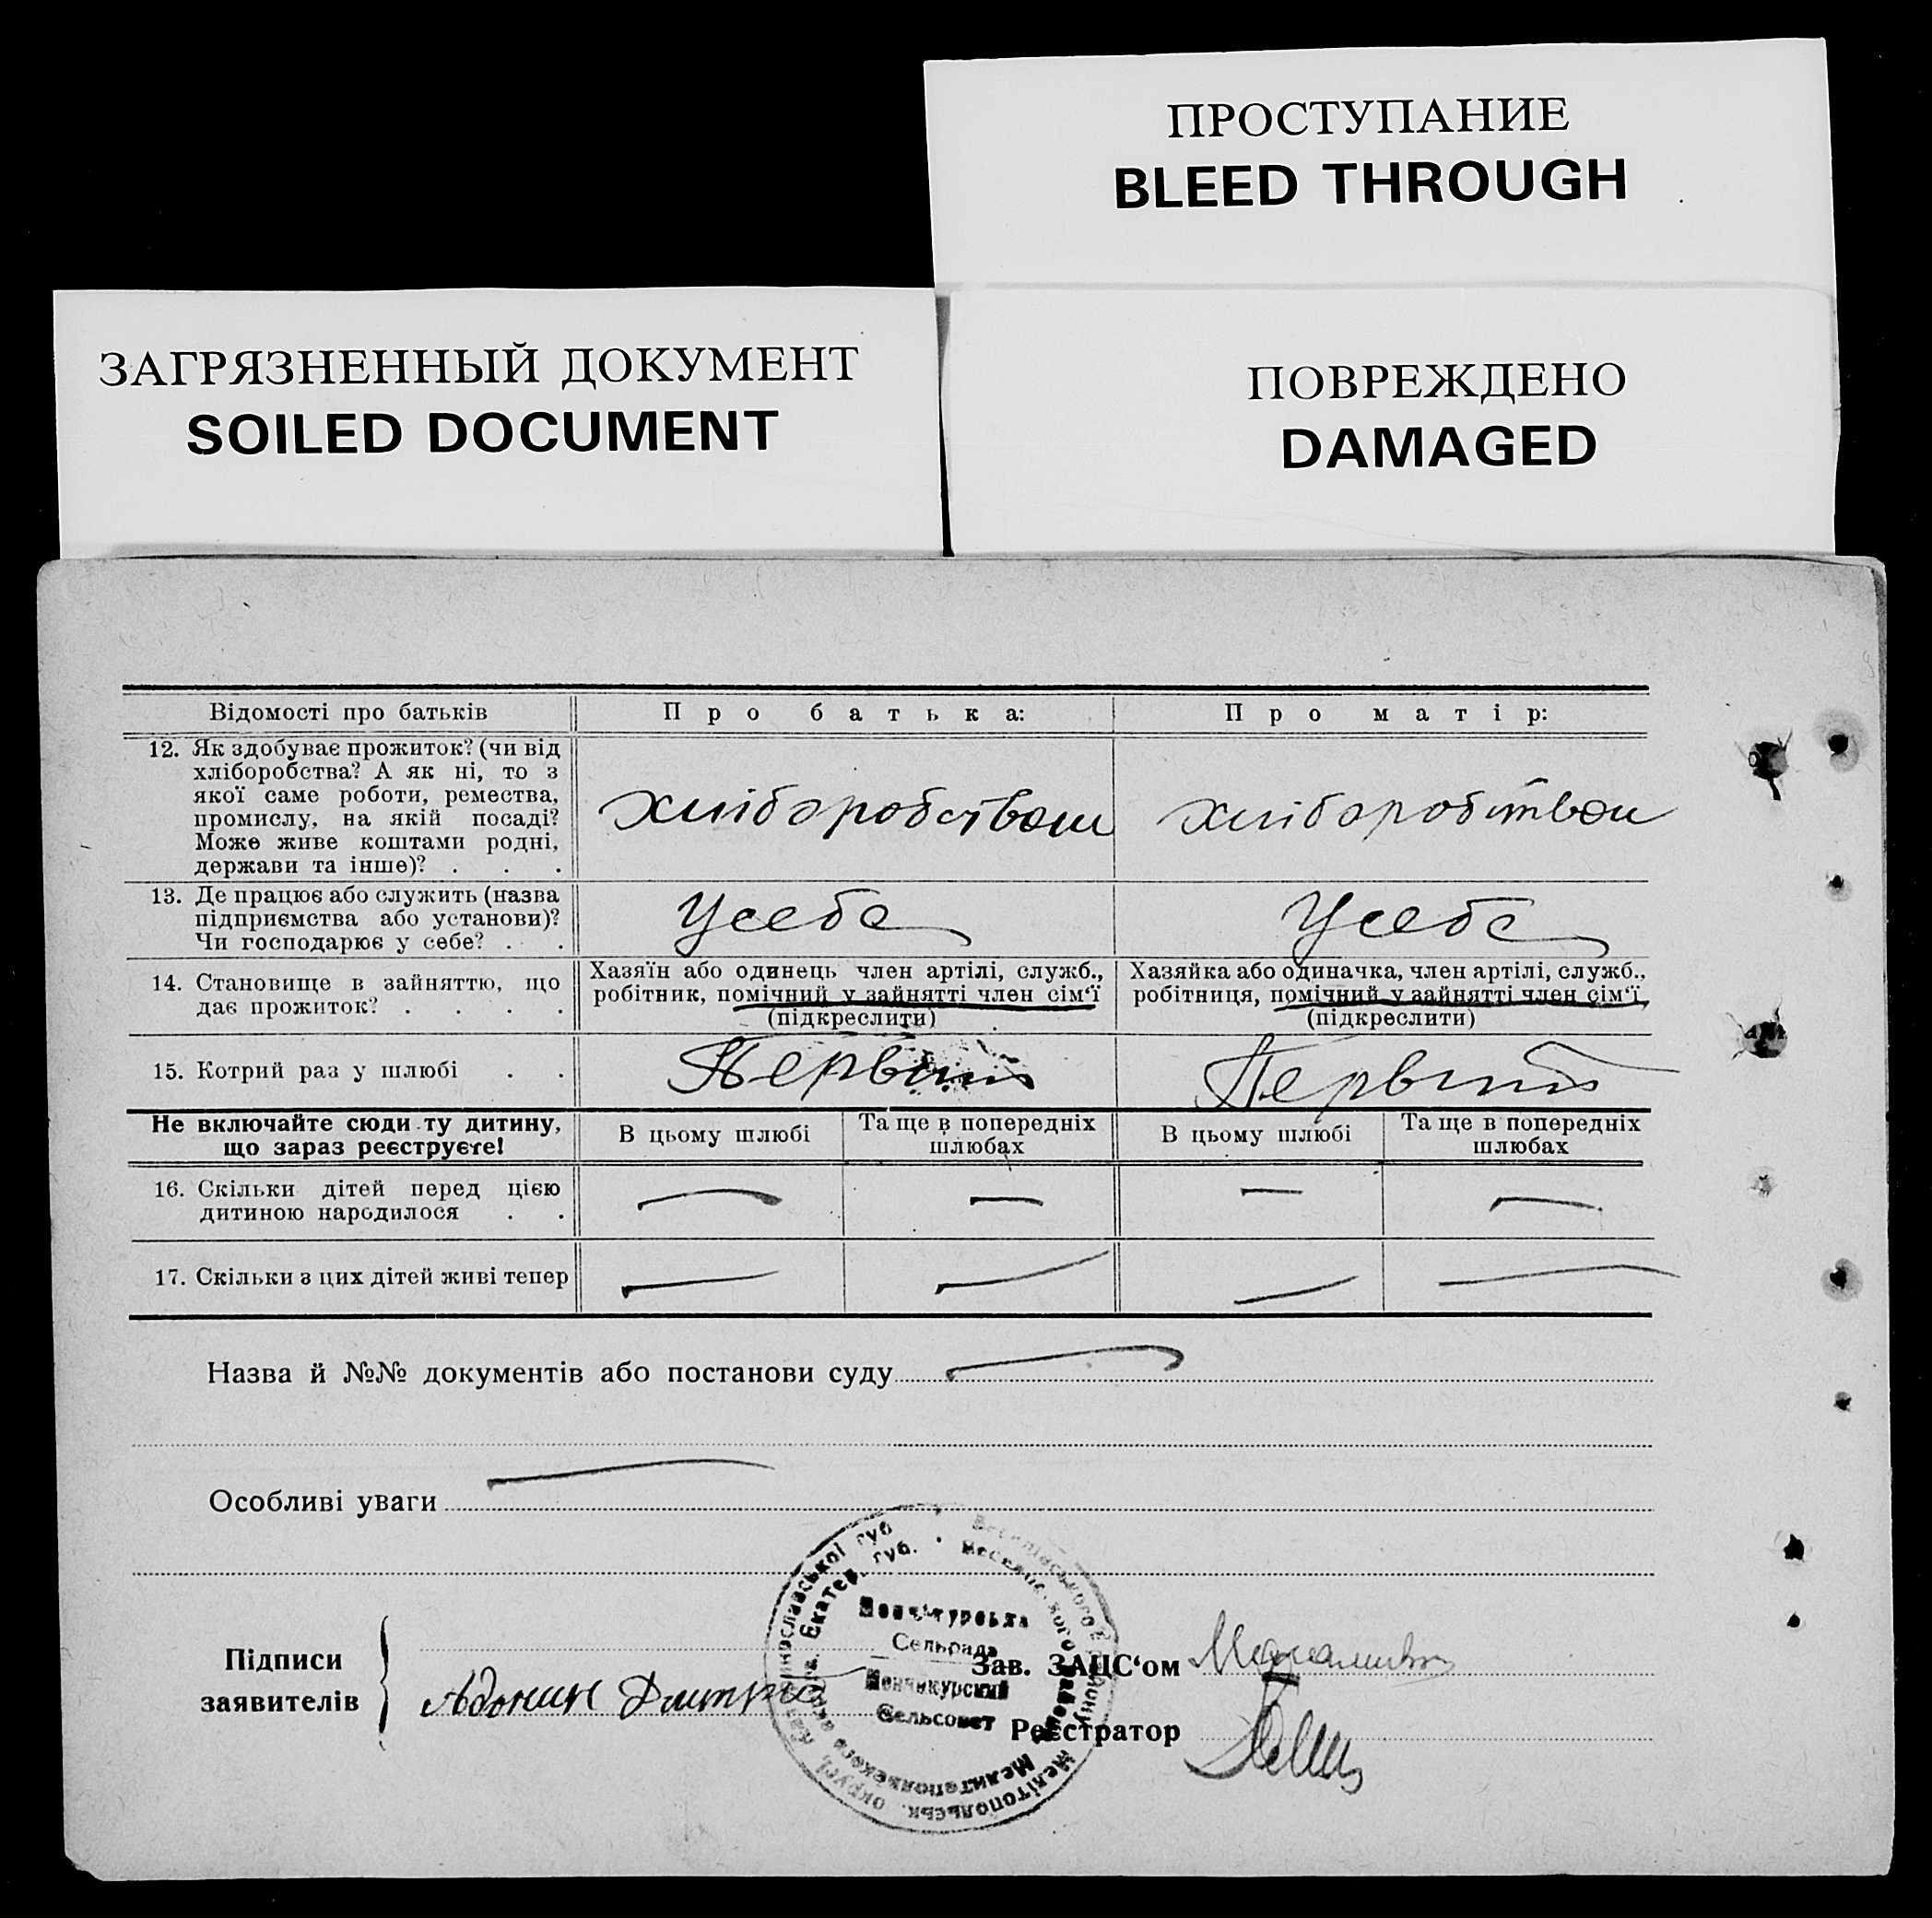 ПРОСТУПАНИЕ
BLEED THROUGH
ЗАГРЯЗНЕННЫЙ ДОКУМЕНТ
SOILED DOCUMENT
ПОВРЕЖДЕНО
DAMAGED
Відомості про батьків
Про батька:
Про матір:
12. Як здобуває прожиток? (чи від
хліборобства? А як ні, то з
якої саме роботи, ремества,
промислу, на якій посаді?
Може живе коштами родні,
держави та інше)? . . .
хліборобством
хліборобством
13. Де працює або служить (назва
підприємства або установи)?
Чи господарює у себе? . .
Усебе
Усебе
14. Становище в зайняттю, що
дає прожиток? . . . .
Хазяїн або одинець член артілі, служб.,
робітник, помічний у зайнятті член сім‘ї
(підкреслити)
Хазяйка або одиначка, член артілі, служб.,
робітниця, помічний у зайнятті член сім‘ї,
(підкреслити)
15. Котрий раз у шлюбі . .
Первий
Первий
Не включайте сюди ту дитину,
що зараз реєструєте!
В цьому шлюбі
Та ще в попередніх
шлюбах
В цьому шлюбі
Та ще в попередніх
шлюбах
16. Скільки дітей перед цією
дитиною народилося . .
— — — —
17. Скільки з цих дітей живі тепер
— — — —
Назва й №№ документів або постанови суду —
Особливі уваги —
Підписи
заявителів
Адонин Дмитро
Сельрада
Менчикурский
Сельсовет
Зав. ЗАЦС‘ом
Реєстратор